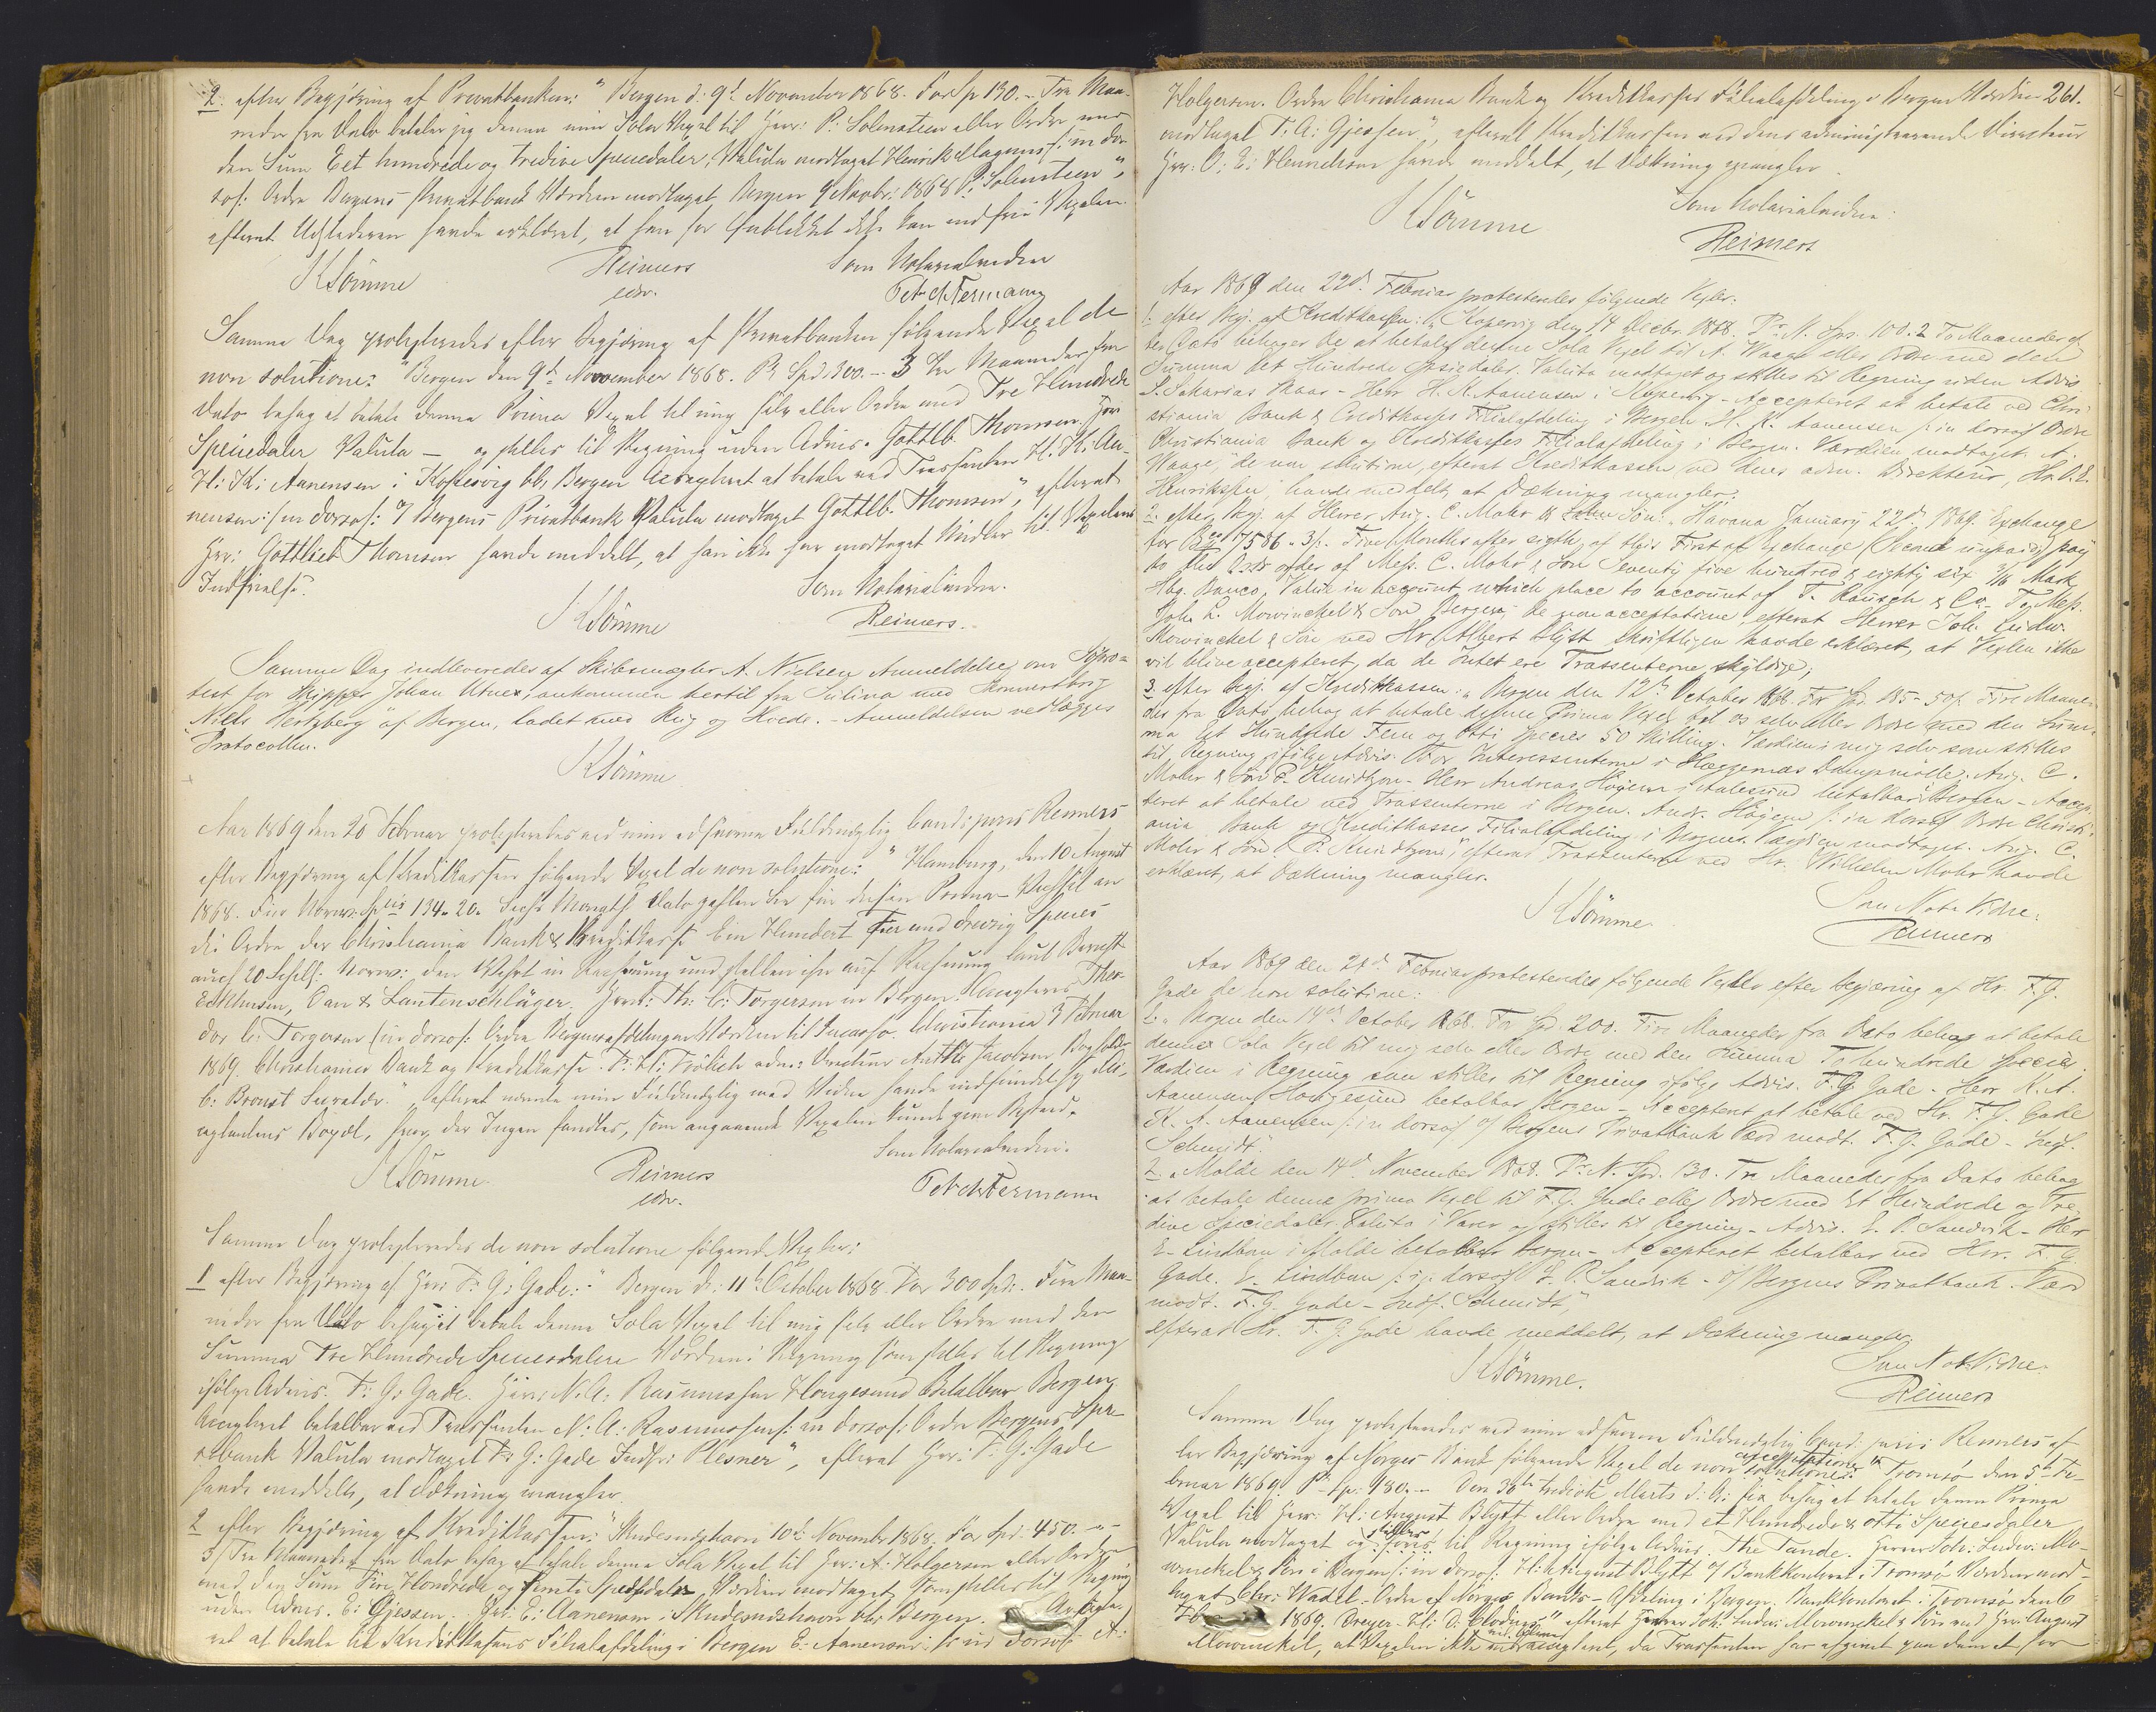 2. efter Begjæring af Privatbanken: "Bergen d: 9de November 1868. For Sp 130.- Tre Maa-
neder fra Dato betaler jeg denne min Sola Vexel til Herr: P: Solensteen eller Ordre med
den Sum Eet hundrede og tredive Speciedaler, Valuta modtaget Henrik Magnus /: in dor
so /: Ordre Bergens Privatbank Værdien modtaget Bergen 9 Novbr: 1868 P: Solensteen",
efterat Udstederen havde erklæret, at han for Øieblikket ikke kan indfrie Vexelen.
KSömme Reimers Som Notarialvidne
edsv.
Samme Dag protesteredes efter Begjæring af Privatbanken følgende Vexel de
non solutione: "Bergen den 9de November 1868. Pr Spd. 300.- 3 Tre Maaneder fra
Dato behag at betale denne Prima Vexel til mig selv eller Ordre med Tre Hundrede
Speciedaler Valuta — og stilles til Regning uden Advis. Gottlb. Thomsen. Herr
H: K: Aanensen i Kopervig bt. Bergen Accepteret at betale ved Trassenten H. K. Aa-
nensen :/ in dorso /: O/ Bergens Privatbank Valuta modtaget Gottlb. Thomsen", efterat
Hrr: Gottlieb Thomsen havde meddelt, at han ikke har modtaget Midler til Vexelens
Indfrielse.
Som Notarialvidne.
KSömme Reimers.
Samme Dag indleveredes af Skibsmægler A. Nielsen Anmeldelse om Søpro-
test for Skipper Johan Utnes, ankommen hertil fra Sulina med
"Niels Hertzberg" af Bergen, ladet med Rug og Hvede. - Anmeldelsen vedlægges
Protocollen.
KSömme
Aar 1869 den 20 Februar protesteredes ved min edsvorne Fuldmægtig cand: juris Reimers
efter Begjæring af Kreditkassen følgende Vexel de non solutione: "Hamburg, den 10 August
1868. Für Norw. Spcies 134. 20. Sechs Monath dato zahlen Sie für diesen Prima-Wechsel an
die Ordre der Christiania Bank & Kreditkasse Ein Hundert Vier und dreizig Species
auch 20 Schill: Norw: den Werth in Rechnung und stellen ihn auf Rechnung laut Bericht
& Lautenschläger. Herrn: Th: C: Torgersen in Bergen. Acceptirt Theo-
dor C: Torgersen (in dorso/: Ordre Bergensafdelingen Værdien til Incasso. Christiania 3 Februar
1869. Christiania Bank og Kreditkasse. Fr: H: Frölich adm: Directeur Jacobsen Bogholder
efterat nævnte min Fuldmægtig med Vidne havde indfundet sig
ceptantens Bopæl, hvor der Ingen fandtes, som angaaende Vexelen kunde give Besked.
Som Notarialvidne.
KSömme. Reimers
edsv.
Samme Dag protesteredes de non solutione følgende Vexler:
1 efter Begjæring af Herr F: G: Gade:- "Bergen d: 11te October 1868. For 300 Spd. Fire Maa-
neder fra Dato behag at betale denne Sola Vexel til mig selv eller Ordre med den
Summa Tre Hundrede Speciesdaler Værdien i Regning som stilles til Regning
ifølge Advis. F: G: Gade. Herr: N: A: Rasmussen Haugesund Betalbar Bergen,
Accepteret betalbar ved Trassenten N: A: Rasmussen /: in dorso /: Ordre Bergens Spa-
rebank Valuta modtaget F: G: Gade Indf: Plesner", efterat Herr: F: G: Gade
havde meddelt, at Dækning mangler.
2 efter Begjæring af Kreditkassen: "Skudesneshavn 10de November 1868. For Spd. 450.-
3/ Tre Maaneder fra Dato behag at betale denne Sola Vexel til Herr: A: Holgersen eller Ordre
med den Sum Fire Hundrede og Femti Speciedaler, Værdien modtaget som stilles til Regning
uden Advis. E: Gjessen. Hr: E: Aanensen i Skudesneshavn bt. Bergen. Accepte-
ret at betale til Kreditkassens Filialafdeling i Bergen E: Aanensen :/ in dorso /: A:
Holgersen. Ordre Christiania Bank og Kreditkasses Filialafdeling i Bergen Værdien 261.
modtaget T. A: Gjessen", efterat Kreditkassen ved dens administrerende Directeur
Hrr: O: E: Henrichsen havde meddelt, at Dækning mangler.
Som Notarialvidne:
KSömme Reimers
Aar 1869 den 22d. Februar protesteredes følgende Vexler:
1: efter Begj. af Kreditkassen: "Kopervig den 14 Decbr. 1868. Pr. N. Sps. 100. 2 To Maaneder ef-
ter Dato behager De at betale denne Sola Vexel til A. Waage eller Ordre med den
Summa Et Hundrede Speciedaler. Valuta modtaget og stilles til Regning uden Advis
S. Sakarias Skaar - Herr H. K. Aanensen i Kopervig - Accepteret at betale ved Chri-
stiania Bank & Creditkasses Filialafdeling i Bergen H. K. Aanensen /: in dorso /: Ordre
Christiania Bank og Kreditkasses Filialafdeling i Bergen. Værdien modtaget. A.
Waage", de non solutione, efterat Kreditkassen ved dens adm. Direkteur, Hr. O. E.
Henriksen, havde meddelt, at Dækning mangler.
2. efter Begj. af Herrer Aug. C. Mohr & Søn: "Havana January 22d. 1869. Exchange
for Bco 7586. 3/-. Five Months after sigth of this First of Exchange (Second unpaid) pay
to the Ordr order of Mess. C. Mohr & Son Seventy five hundred & eighty six 3/16 Mark
Hbg. Banco, Value in account, which place to account of F. Rausch & Co. To Mess.
Joh. L. Mowinckel & Son Bergen", de non acceptatione, efterat Herrer Joh. Ludw.
Mowinckel & Søn ved Hr. Albert Hjist skriftligen havde erklæret, at Vexlen ikke
vil blive accepteret, da de Intet ere Trassenterne skyldige;
3. efter Begj. af Kreditkassen: "Bergen den 12te October 1868. For Spd. 185-50/. Fire Maane-
der fra Dato behag at betale denne Prima Vexel til os selv eller Ordre med den Sum-
ma Et Hundrede Fem og Otti Species 50 Skilling. Værdien i mig selv som stilles
til Regning ifølge Advis. For Interessenterne i Hæggernæs Dampmølle. Aug. C.
Mohr & Søn P. Knudtzon - Herr Andreas Høgem i Aalesund betalbar Bergen - Accep-
teret at betale ved Trassenterne i Bergen. Andr. Høgem /: in dorso /: Ordre Christi-
ania Bank og Kreditkasses Filialafdeling i Bergen. Værdien modtaget. Aug. C.
Mohr & Søn. P. Knudtzon", efterat Trassenterne ved Hr. Wilhelm Mohr havde
erklæret, at Dækning mangler.
Som Nota Vidne:
KSömme. Reimers
Aar 1869 den 24d. Februar protesteredes følgende Vexler efter Begjæring af Hr. F. G.
Gade de non solutione:
1. "Bergen den 19de October 1868. For Spd. 200. Fire Maaneder fra Dato behag at betale
denne Sola Vexel til mig selv eller Ordre med den Summa Tohundrede Species.
Værdien i Regning som stilles til Regning ifølge Advis. F. G. Gade. Herr K. A.
Aanensen Haugesund betalbar Bergen - Accepteret at betale ved Hr. F. G. Gade
K. A. Aanensen /: in dorso /: O/ Bergens Privatbank Værd modt. F. G. Gade - Indf.
Schmidt."
2. "Molde den 14d. November 1868. Pr. N. Spd. 130. Tre Maaneder fra Dato behag
at betale denne prima Vexel til F. G. Gade eller Ordre med Et Hundrede og Tre-
dive Speciedaler. Valuta i Varer og stilles til Regning - Advis. E. P. Sandvik - Herr
E. Lindbau i Molde betalbar Bergen - Accepteret betalbar ved Hrr. F. G.
Gade. E. Lindbau /: in dorso /: E. P. Sandvik - O/ Bergens Privatbank. Værd
modt. F. G. Gade - Indf. Schmidt",
efterat Hr. F. G. Gade havde meddelt, at Dækning mangler.
Som Not: Vidne.
KSömme. Reimers
Samme Dag protesteredes ved min edsvorne Fuldmægtig Cand. juris Reimers ef-
acceptatione
ter Begjæring af Norges Bank følgende Vexel de non solutione: "Tromsø den 5te Fe-
bruar 1869. Pr Sp: 180.- Den 30te Marts d: A: behag at betale denne Prima
Vexel til Herr: H: August Blytt eller Ordre med et Hundrede & otti Speciesdaler
stilles
Valuta modtaget og føres til Regning ifølge Advis. The Tande. Herrer Joh: Ludw: Mo-
winckel & Søn i Bergen /: in dorso /: H: August Blytt O/ Bankkontoret i Tromsø Værdien mod-
taget Chr: Wadel - Ordre af Norges Banks-Afdeling i Bergen. Bankkontoret i Tromsø den 6
1869. Dreyer. H: D: Clodius" efterat Herrer Joh: Ludw: Mowinckel & Søn ved Herr: August
Mowinckel, at Vexelen ikke vil blive accepteret, da Trassenten har